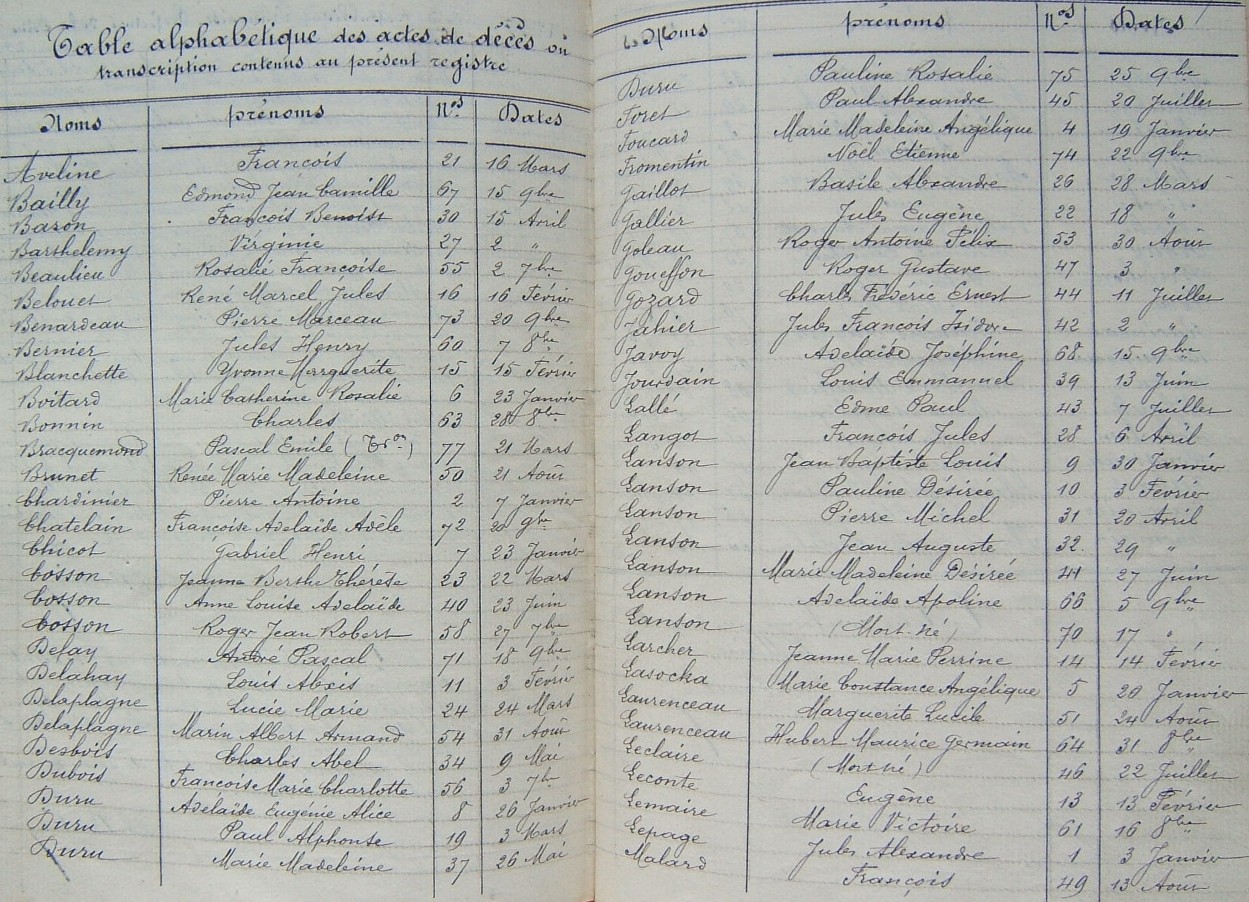 Table alphabétique des actes de décès ou
transcription contenus au présent registre
Noms prénoms Nos Dates
Aveline François 21 16 Mars
Bailly Edmond Jean Camille 67 15 9bre
Bazon François Benoist 30 15 Avril
Barthelemy Virginie 27 2 "
Beaulieu Rosalie Françoise 55 2 7bre
Belouet René Marcel Jules 16 16 Février
Benardeau Pierre Marceau 73 20 9bre
Bernier Jules Henry 60 7 8bre
Blanchette Yvonne Merguerite 15 15 Février
Boitard Marie Catherine Rosalie 6 23 Janvier
Bonnin Charles 63 28 8bre
Bracquemond Pascal Emile (Tron) 77 21 Mars
Brunet Renée Marie Madeleine 50 21 Août
Chardinier Pierre Antoine 2 7 Janvier
Chatelain Françoise Adelaïde Adèle 72 20 9bre
Chicot Gabriel Henri 7 23 Janvier
Cosson Jeanne Berthe Thérèse 23 22 Mars
Cosson Anne Louise Adelaïde 40 23 Juin
Cosson Roger Jean Robert 58 27 7bre
Defay André Pascal 71 18 9bre
Delahay Louis Alexis 11 3 Février
Delaplagne Lucie Marie 24 24 Mars
Delaplagne Marin Albert Armand 54 31 Août
Desbois Charles Abel 34 9 Mai
Dubois Françoise Marie Charlotte 56 3 7bre
Duru Adelaïde Eugénie Alice 8 26 Janvier
Duru Paul Alphonse 19 3 Mars
Duru Marie Madeleine 37 26 Mai
les Noms prénoms Nos Dates
Duru Pauline Rosalie 75 25 9bre
Foret Paul Alexandre 45 20 Juillet
Foucard Marie Madeleine Angélique 4 19 Janvier
Fromentin Noël Etienne 74 22 9bre
Gaillot Basile Alexandre 26 28 Mars
Gallier Jules Eugène 22 18 "
Goleau Roger Antoine Félix 53 30 Août
Goueffon Roger Gustave 47 3 "
Gozard Charles Frédéric Ernest 44 11 Juillet
Jahier Jules François Isidore 42 2 "
Javoy Adelaïde Joséphine 68 15 9bre
Jourdain Louis Emmanuel 39 13 Juin
Lallé Edme Paul 43 7 Juillet
Langot François Jules 28 6 Avril
Lanson Jean Baptiste Louis 9 30 Janvier
Lanson Pauline Désirée 10 3 Février
Lanson Pierre Michel 31 20 Avril
Lanson Jean Auguste 32 29 "
Lanson Marie Madeleine Désirée 41 27 Juin
Lanson Adelaïde Apoline 66 5 9bre
Lanson (Mort-né) 70 17 "
Larcher Jeanne Marie Perrine 14 14 Février
Lasocka Marie Constance Angélique 5 20 Janvier
Laurenceau Marguerite Lucile 51 24 Août
Laurenceau Hubert Maurice Germain 64 31 8bre
Leclaire (Mort né) 46 22 Juillet
Leconte Eugène 13 13 Février
Lemaire Marie Victoire 61 16 8bre
Lepage Jules Alexandre 1 3 Janvier
Malard François 49 13 Août